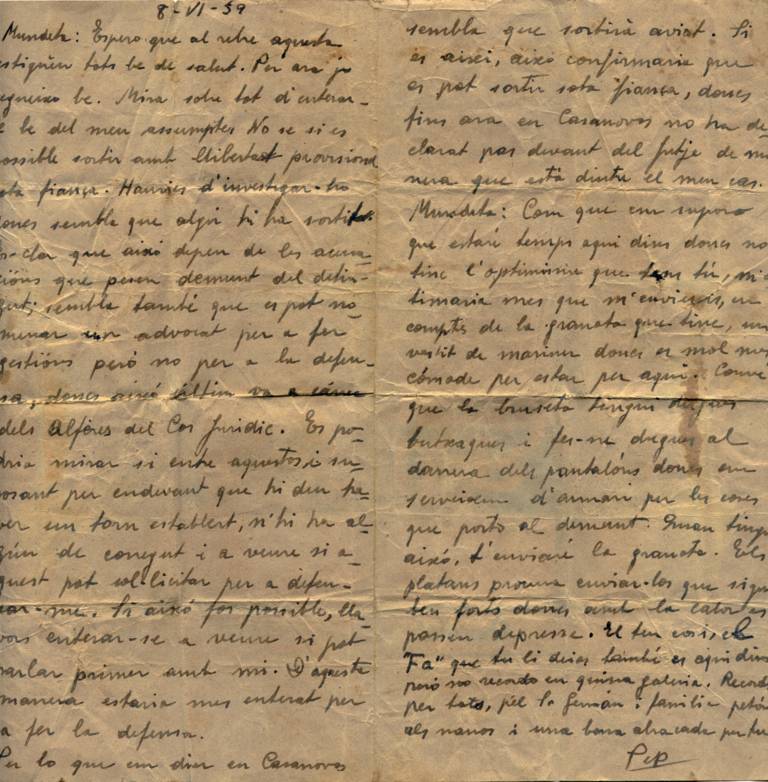 8-VI-39
Mundeta: Espero que al rebre aquesta
estigueu tots be de salut. Per ara jo
segueixo be. Mira sobre tot d'enterar-
te be del meu assumptes No se si es
possible sortir amb llibertat provisional
sota fiança. Hauries d'investigar-ho
doncs sembla que algú hi ha sortit.
Es clar que això depen de les acusa-
cións que pesen demunt del detin-
gut; sembla també que es pot no-
menar un advocat per a fer
gestións però no per a la defen-
sa, doncs això últim va a càrrec
dels Alféres del Cos Juridic. Es po-
dria mirar si entre aquestos, i su-
posant per endevant que hi deu ha-
ver un torn establert, n'hi ha al-
gún de conegut i a veure si a-
quest pot sol·licitar per a defen-
sar-me. Si això fos possible, lla-
vors enterar-se a veure si pot
parlar primer amb mi. D'aquesta
manera estaria mes enterat per
a fer la defensa.
Per lo que em dier en Casanovas
sembla que sortirà aviat. Si
es aixi, això confirmaria que
es pot sortir sota fiança, doncs
fins ara en Casanovas no ha de-
clarat pas devant del Jutje de ma-
nera que està dintre el meu cas.
Mundeta: Com que em suposo
que estaré temps aqui dins doncs no
tinc l'optimisme que tens tú, m'es-
timaria mes que m'enviessis, en
comptes de la granota que tinc, un
vestit de mariner doncs es mol mes
còmode per estar per aqui. Convé
que la bruseta tingui dugues
butxaques i fes-ne dugues al
darrera dels pantalóns doncs em
serveixen d'armari per les coses
que porto al demunt. Quan tingui
això, t'enviaré la granota. Els
platans procura enviar-los que sigui
ben forts doncs amb la calor es
passen depresse. El teu cosi, el
Fa" que tu li deies també es aqui dins
però no recordo en quina galeria. Records
per tots, pel la Germán i familia petóns
als nanos i una bona abraçada per tu
Pep